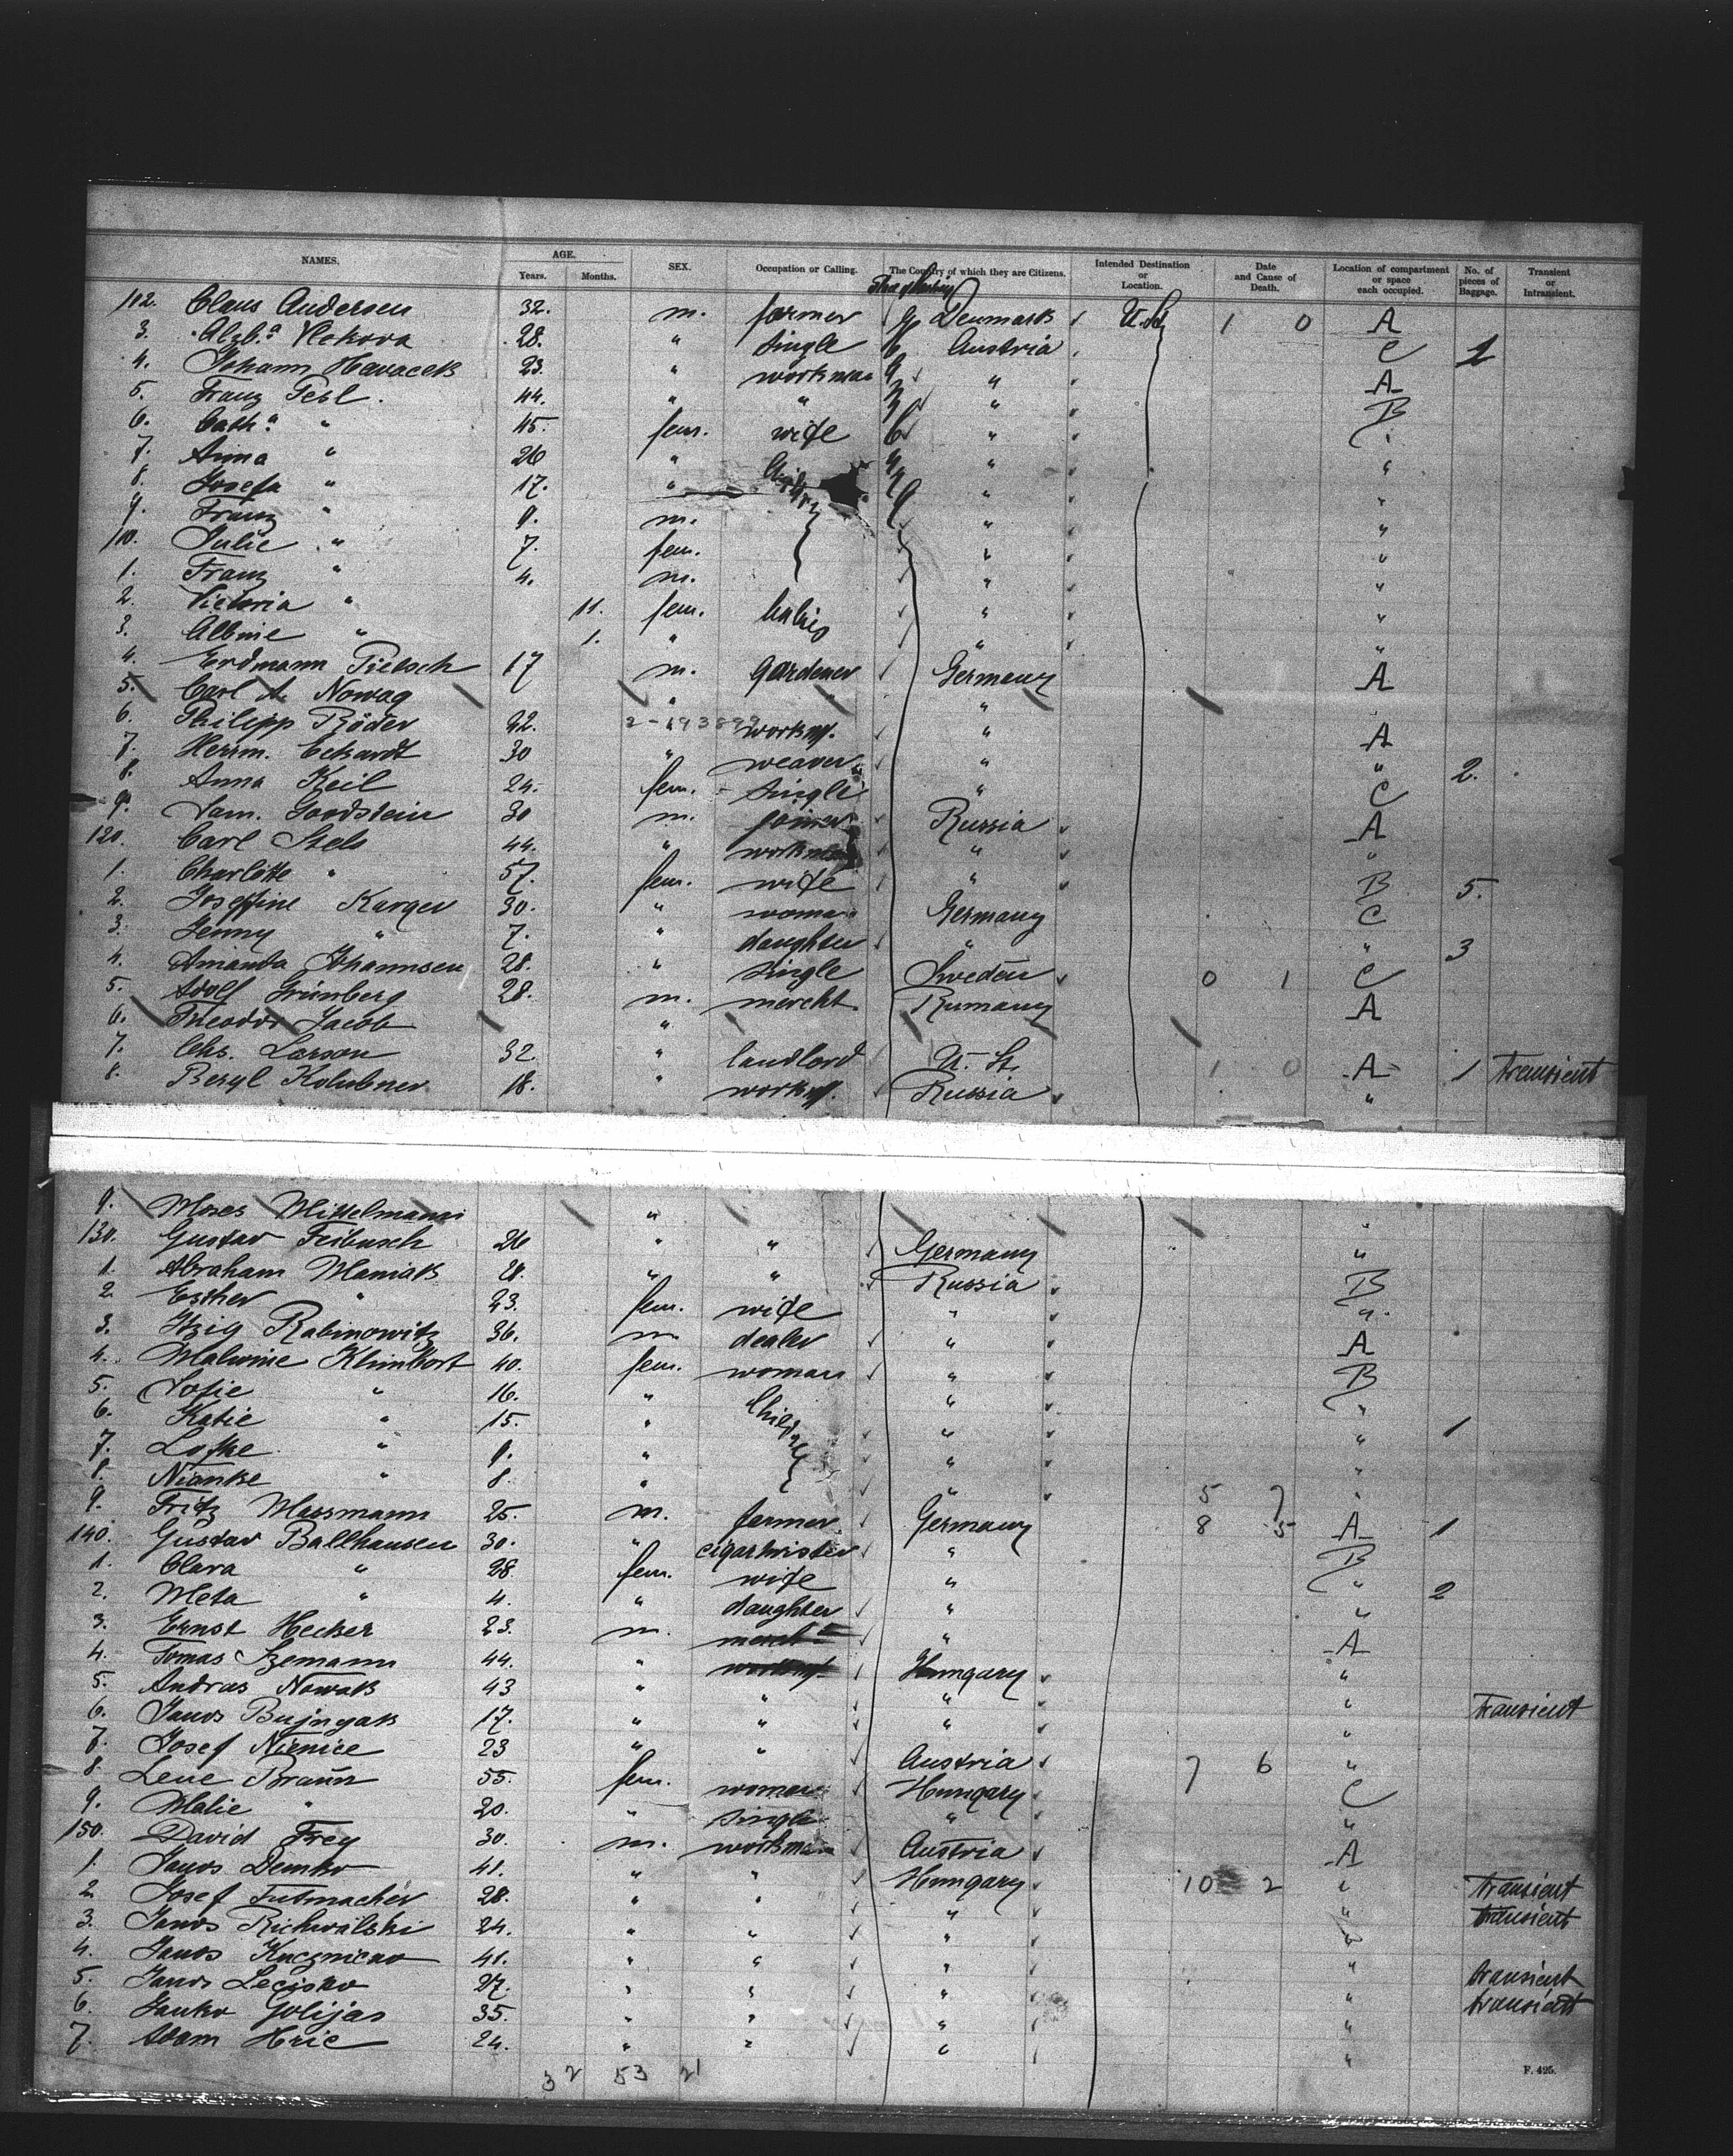 NAMES. AGE. Years. Months. SEX. Occupation or Calling. The Country of which they are Citizens. Intended Destination or Location. Date and Cause of Death. Location of compartment or space each occupied. No. of pieces of Baggage. Transient or Intransient.
102. Claus Andersen 32. m. farmer Denmark U. St. 1 0 A
3. Alzb.a Vlckova 28. " single Austria C 1
4. Johann Havacek 23. " workman " A
5. Franz Pesl. 44. " " " B
6. Cath.a " 45. fem. wife "
7. Anna " 26 " " "
8. Josefa " 17. " " "
9. Franz " 9. m. " "
110. Julie " 7. fem. " "
1. Franz " 4. m. " "
2. Victoria " 11. fem. babies " "
3. Albine " 1. " " "
4. Erdmann Pietsch 17 m. gardener Germany A
5. Carl A. Nowag " "
6. Philipp Röder 22. " workm. " A
2-193899
7. Herrm. Eckardt 30 " weaver " " 2.
8. Anna Keil 24. fem. single " C
9. Sam. Goodstein 30 m. joiner Russia A
120. Carl Stels 44. " workman " "
1. Charlotte " 57. fem. wife " B 5.
2. Josefine Karger 30. " woman Germany C
3. Jenny " 7. " daughter " " 3
4. Amanda Johannsen 28. " single Sweden 0 1 C
5. Adolf Grünberg 28. m. mercht. Rumany A
6. Theodor Jacob "
7. Chs. Larson 32 " landlord U. St. 1 0 A 1 transient
8. Beryl Kolubner 18. " workm. Russia "
9. Moses Mittelmann " "
130. Gustav Feibusch 26 " " Germany "
1. Abraham Maniak 28. " " Russia B
2 Esther " 23. fem. wife " "
3. Itzig Rabinowitz 36. m dealer " A
4. Malwine Klimbort 40. fem. woman " B
5. Sofie " 16. " Children " "
6. Katie " 15. " " " 1
7. Lotke " 9. " " "
8. Nianke " 8. " " "
9. Fritz Massmann 25. m. farmer Germany 5 7 8 5 A 1
140. Gustav Ballhausen 30. " cigartwister " B
1. Clara " 28 fem. wife " " 2
2. Meta " 4. " daughter " "
3. Ernst Hecker 23. m. mercht " A
4. Tomas Szemann 44. " workm. Hungary "
5. Andras Nowak 43 " " " " Transient
6. Janos Bujnyak 17. " " " "
7. Josef Nienice 23 " " Austria 7 6 "
8. Lene Braun 55. fem. woman Hungary C
9. Malie " 20. " single " "
150. David Frey 30. m. workman Austria A
1. Janos Demko 41. " " Hungary 10 2 " transient
2 Josef Tutmacher 28. " " " " transient
3. Janos Richwalski 24. " " " "
4. Janos Kucznicao 41. " " " " transient
5. Janos Lecisko 27. " " " " transient
6. Janko Golijas 35. " " " "
7. Adam Hric 24. " " " "
32 53 21
F. 425.